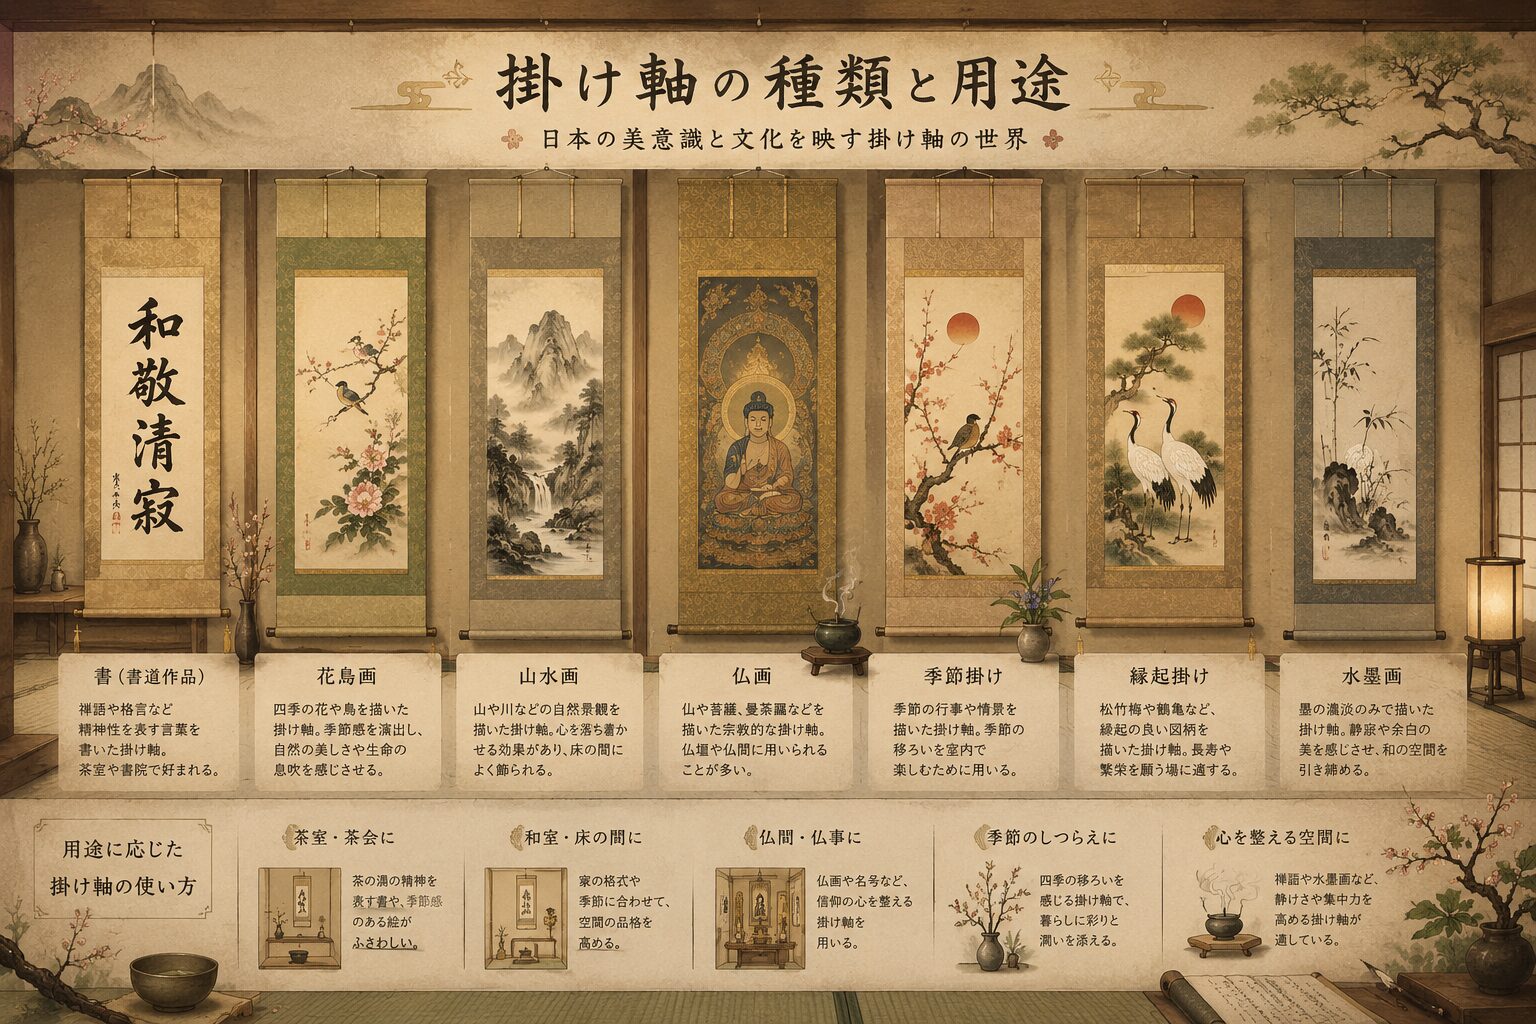 掛け軸の種類と用途
日本の美意識と文化を映す掛け軸の世界
和敬清寂
書（書道作品）
禅語や格言など
精神性を表す言葉を
書いた掛け軸。
茶室や書院で好まれる。
花鳥画
四季の花や鳥を描いた
掛け軸。季節感を演出し、
自然の美しさや生命の
息吹を感じさせる。
山水画
山や川などの自然景観を
描いた掛け軸。心を落ち着か
せる効果があり、床の間に
よく飾られる。
仏画
仏や菩薩、曼荼羅などを
描いた宗教的な掛け軸。
仏壇や仏間に用いられる
ことが多い。
季節掛け
季節の行事や情景を
描いた掛け軸。季節の
移ろいを室内で
楽しむために用いる。
縁起掛け
松竹梅や鶴亀など、
縁起の良い図柄を
描いた掛け軸。長寿や
繁栄を願う場に適する。
水墨画
墨の濃淡のみで描いた
掛け軸。静寂や余白の
美を感じさせ、和の空間を
引き締める。
用途に応じた
掛け軸の使い方
茶室・茶会に
茶の湯の精神を
表す書や、季節感
のある絵が
ふさわしい。
和室・床の間に
家の格式や
季節に合わせて、
空間の品格を
高める。
仏間・仏事に
仏画や名号など、
信仰の心を整える
掛け軸を
用いる。
季節のしつらえに
四季の移ろいを
感じる掛け軸で、
暮らしに彩りと
潤いを添える。
心を整える空間に
禅語や水墨画など、
静けさや集中力を
高める掛け軸が
適している。